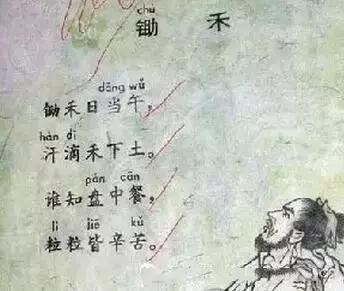 chú
锄 禾
dāng wǔ
锄禾日当午，
hàn dī
汗滴禾下土。
pán cān
谁知盘中餐，
lì jiē kǔ
粒粒皆辛苦。